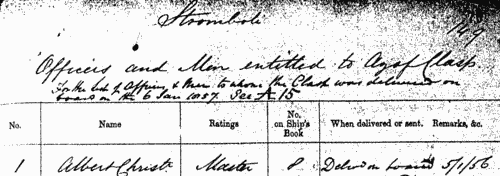 Stromboli
149
Officers and Men entitled to Azof Clasp.
For the list of Officers & Men to whom the Clasp was delivered on
board on the 6 Jan 1857. See A 15
No. Name Ratings No. on Ship's Book When delivered or sent. Remarks, &c.
1 Albert Christ. Master 8 Delivd on board 5/1/56